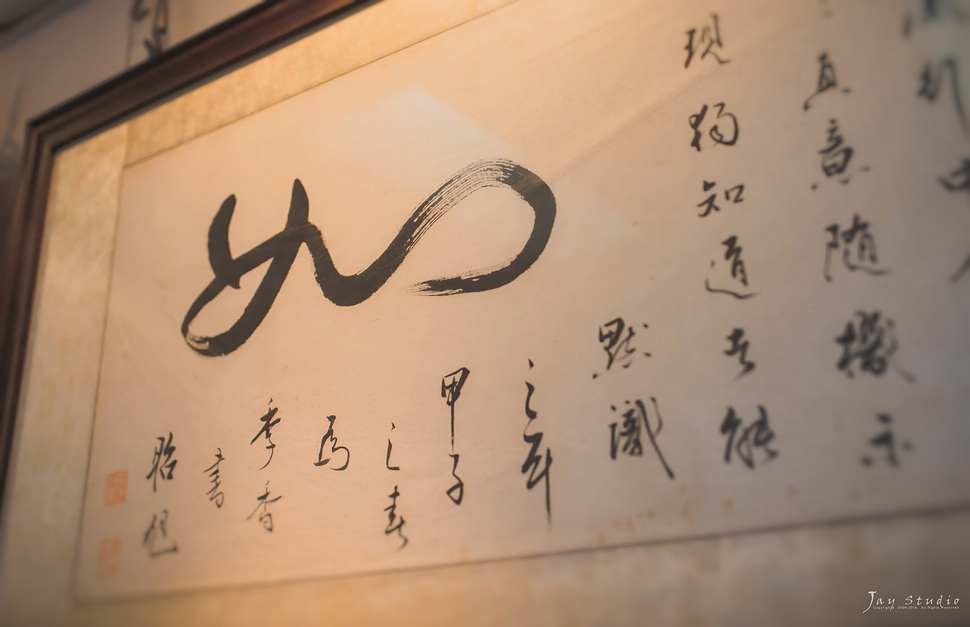 中
真意隨機示
現獨知道者能
默識
如
之年
甲子
之春
為
季香
書
昭旭
Jay Studio